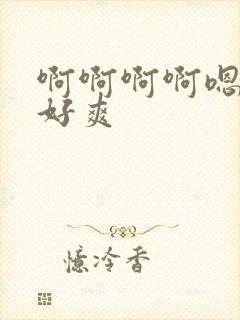 啊啊啊啊嗯
好爽
憶冷香